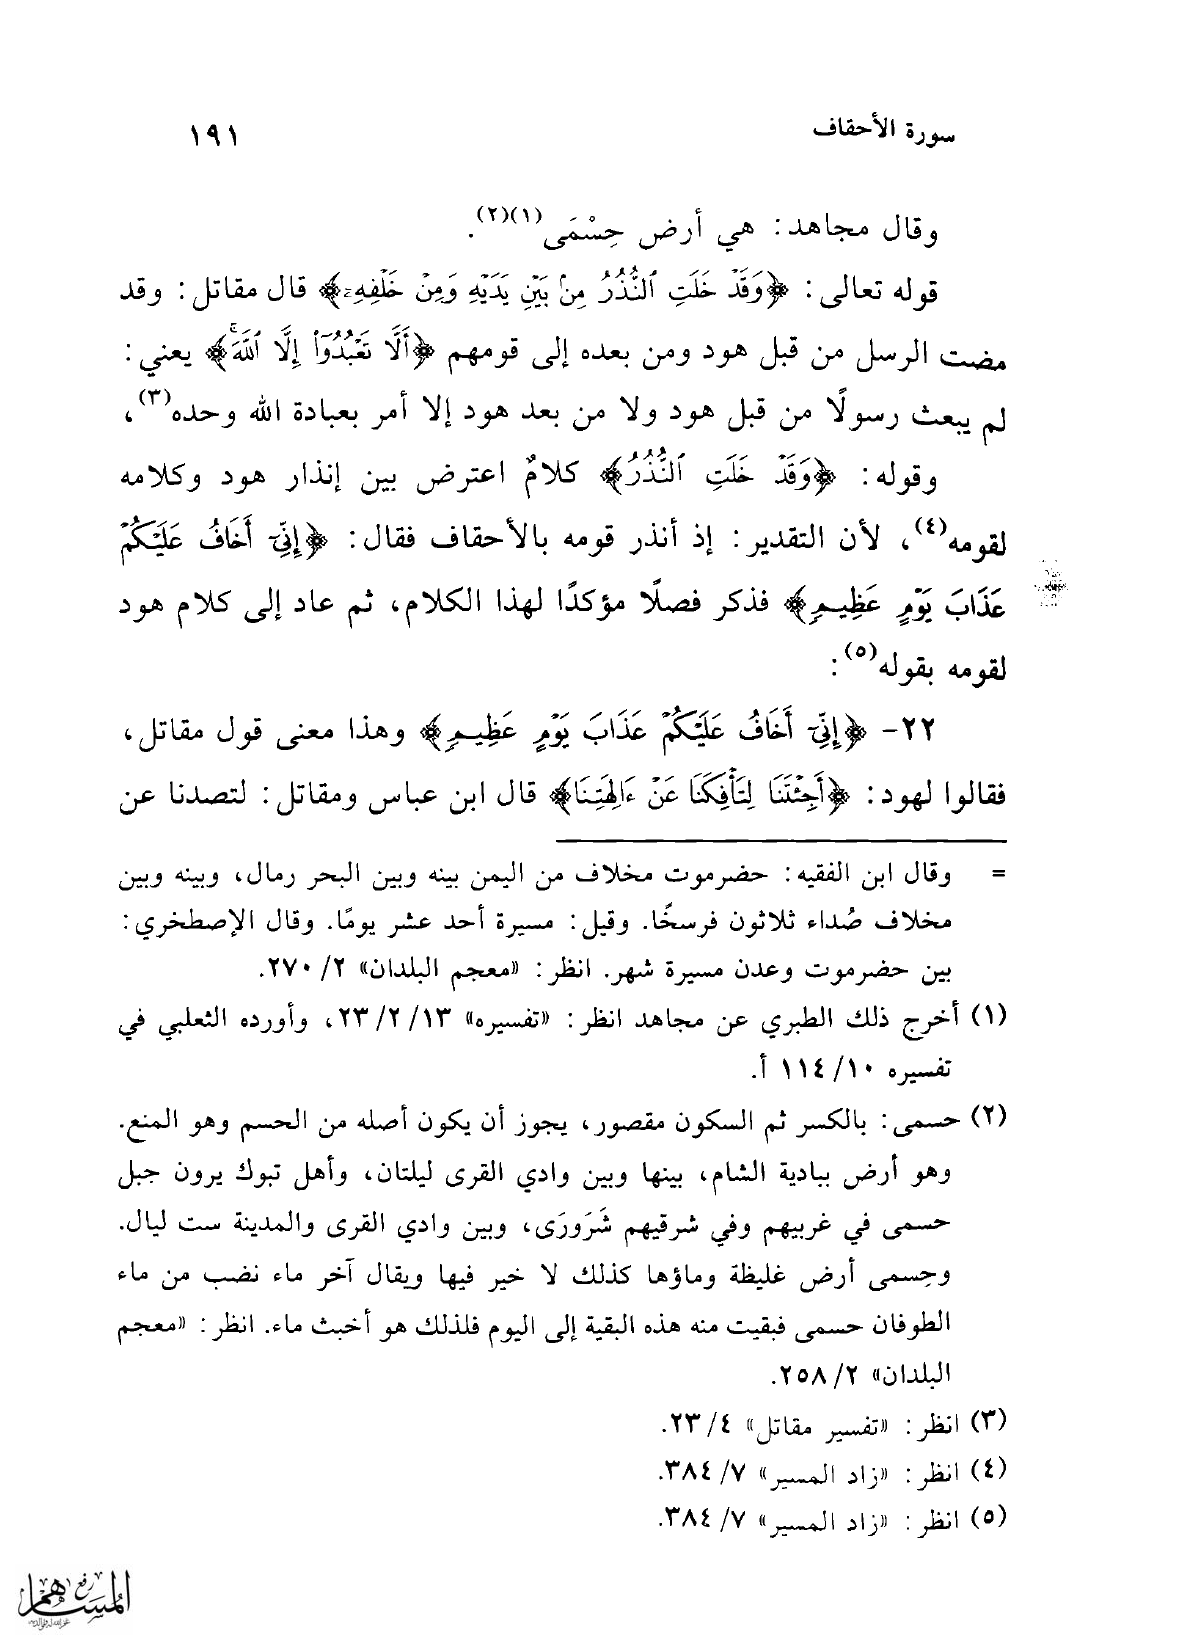 سورة الأحقاف ١٩١
وقال مجاهد: هي أرض حِسْمَى(١)(٢).
قوله تعالى: ﴿وَقَدْ خَلَتِ ٱلنُّذُرُ مِنۢ بَيْنِ يَدَيْهِ وَمِنْ خَلْفِهِۦٓ﴾ قال مقاتل: وقد
مضت الرسل من قبل هود ومن بعده إلى قومهم ﴿أَلَّا تَعْبُدُوٓا۟ إِلَّا ٱللَّهَ ۚ﴾ يعني:
لم يبعث رسولًا من قبل هود ولا من بعد هود إلا أمر بعبادة الله وحده(٣)،
وقوله: ﴿وَقَدْ خَلَتِ ٱلنُّذُرُ﴾ كلامٌ اعترض بين إنذار هود وكلامه
لقومه(٤)، لأن التقدير: إذ أنذر قومه بالأحقاف فقال: ﴿إِنِّىٓ أَخَافُ عَلَيْكُمْ
عَذَابَ يَوْمٍ عَظِيمٍ﴾ فذكر فصلًا مؤكدًا لهذا الكلام، ثم عاد إلى كلام هود
لقومه بقوله(٥):
٢٢- ﴿إِنِّىٓ أَخَافُ عَلَيْكُمْ عَذَابَ يَوْمٍ عَظِيمٍ﴾ وهذا معنى قول مقاتل،
فقالوا لهود: ﴿أَجِئْتَنَا لِتَأْفِكَنَا عَنْ ءَالِهَتِنَا﴾ قال ابن عباس ومقاتل: لتصدنا عن
= وقال ابن الفقيه: حضرموت مخلاف من اليمن بينه وبين البحر رمال، وبينه وبين
مخلاف صُداء ثلاثون فرسخًا. وقيل: مسيرة أحد عشر يومًا. وقال الإصطخري:
بين حضرموت وعدن مسيرة شهر. انظر: «معجم البلدان» ٢/ ٢٧٠.
(١) أخرج ذلك الطبري عن مجاهد انظر: «تفسيره» ١٣/ ٢/ ٢٣، وأورده الثعلبي في
تفسيره ١٠/ ١١٤ أ.
(٢) حسمى: بالكسر ثم السكون مقصور، يجوز أن يكون أصله من الحسم وهو المنع.
وهو أرض ببادية الشام، بينها وبين وادي القرى ليلتان، وأهل تبوك يرون جبل
حسمى في غربيهم وفي شرقيهم شَرَورَى، وبين وادي القرى والمدينة ست ليال.
وحِسمى أرض غليظة وماؤها كذلك لا خير فيها ويقال آخر ماء نضب من ماء
الطوفان حسمى فبقيت منه هذه البقية إلى اليوم فلذلك هو أخبث ماء. انظر: «معجم
البلدان» ٢/ ٢٥٨.
(٣) انظر: «تفسير مقاتل» ٤/ ٢٣.
(٤) انظر: «زاد المسير» ٧/ ٣٨٤.
(٥) انظر: «زاد المسير» ٧/ ٣٨٤.
رفع
المساهم